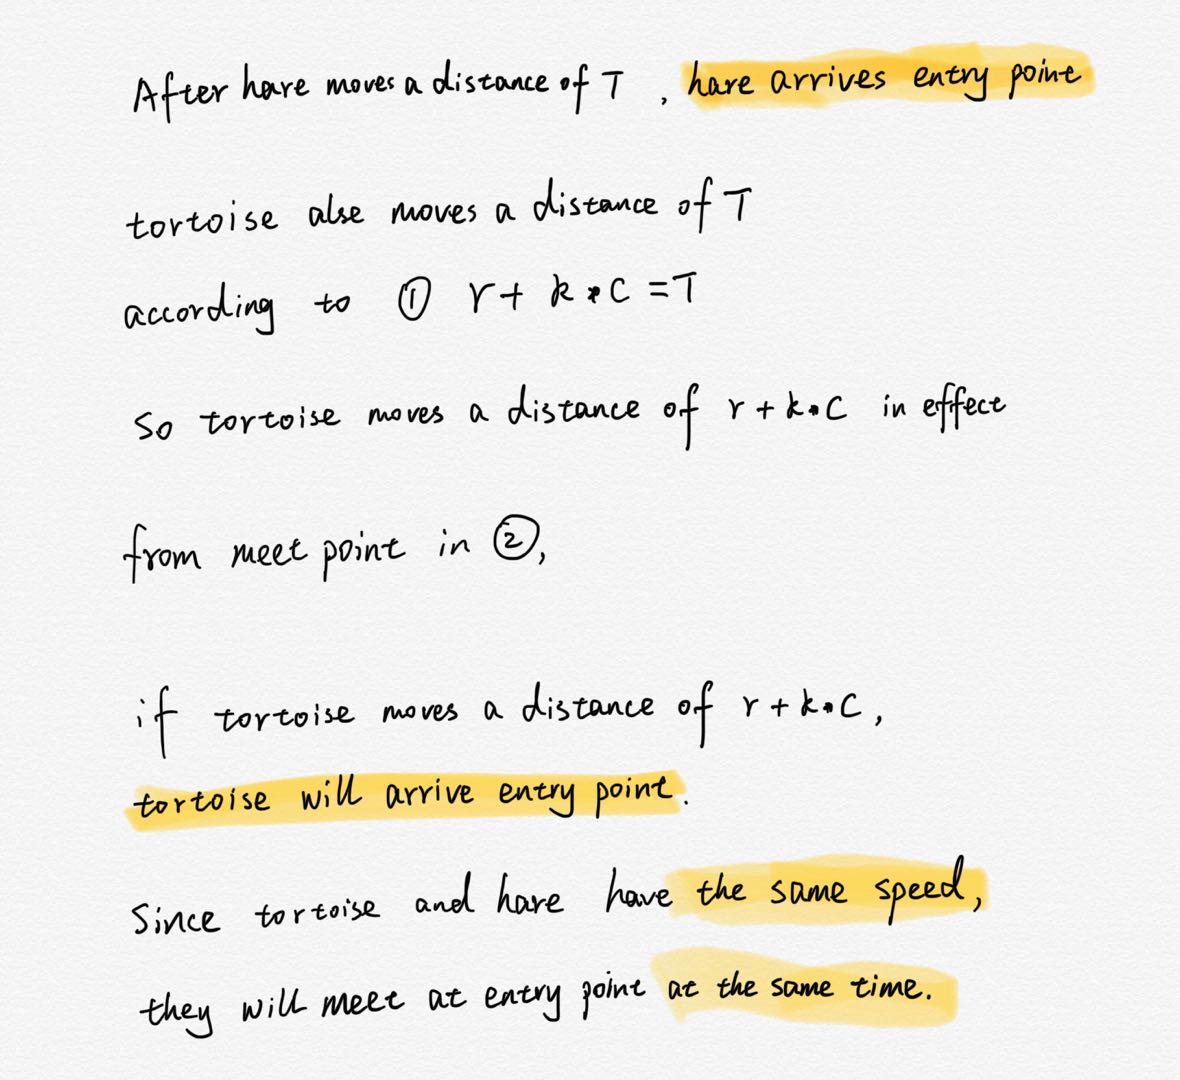 After hare moves a distance of T , hare arrives entry point
tortoise alse moves a distance of T
according to ① r + k * C = T
So tortoise moves a distance of r + k * C in effect
from meet point in ②,
if tortoise moves a distance of r + k * C ,
tortoise will arrive entry point.
Since tortoise and hare have the same speed,
they will meet at entry point at the same time.